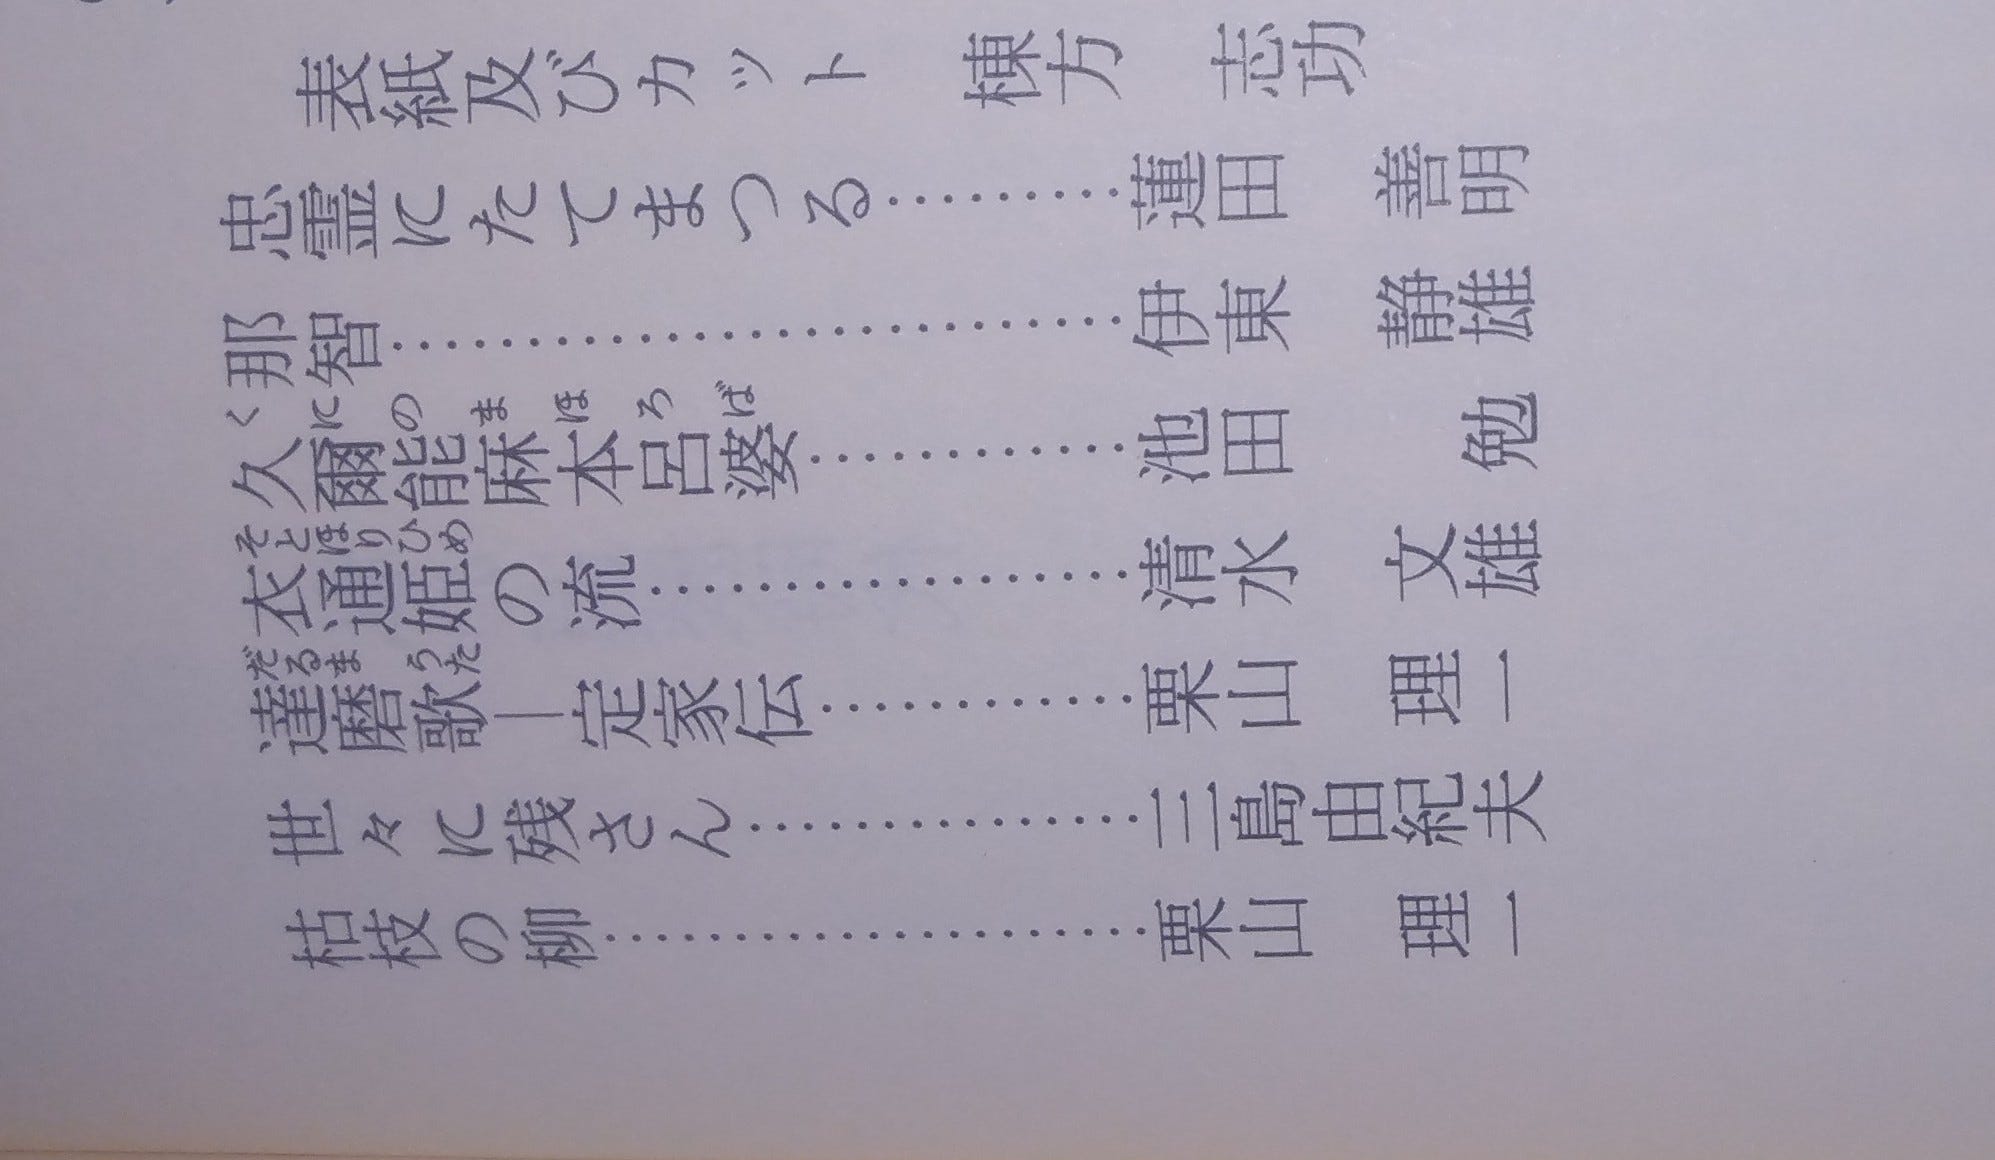 表紙及びカット　棟方　志功
忠霊にたてまつる………蓮田　善明
那智………伊東　静雄
久爾能麻本呂婆………池田　勉
くにのまほろば
衣通姫の流………清水　文雄
そとほりひめ
達磨歌―定家伝………栗山　理一
だるまうた
世々に残さん………三島由紀夫
枯枝の柳………栗山　理一